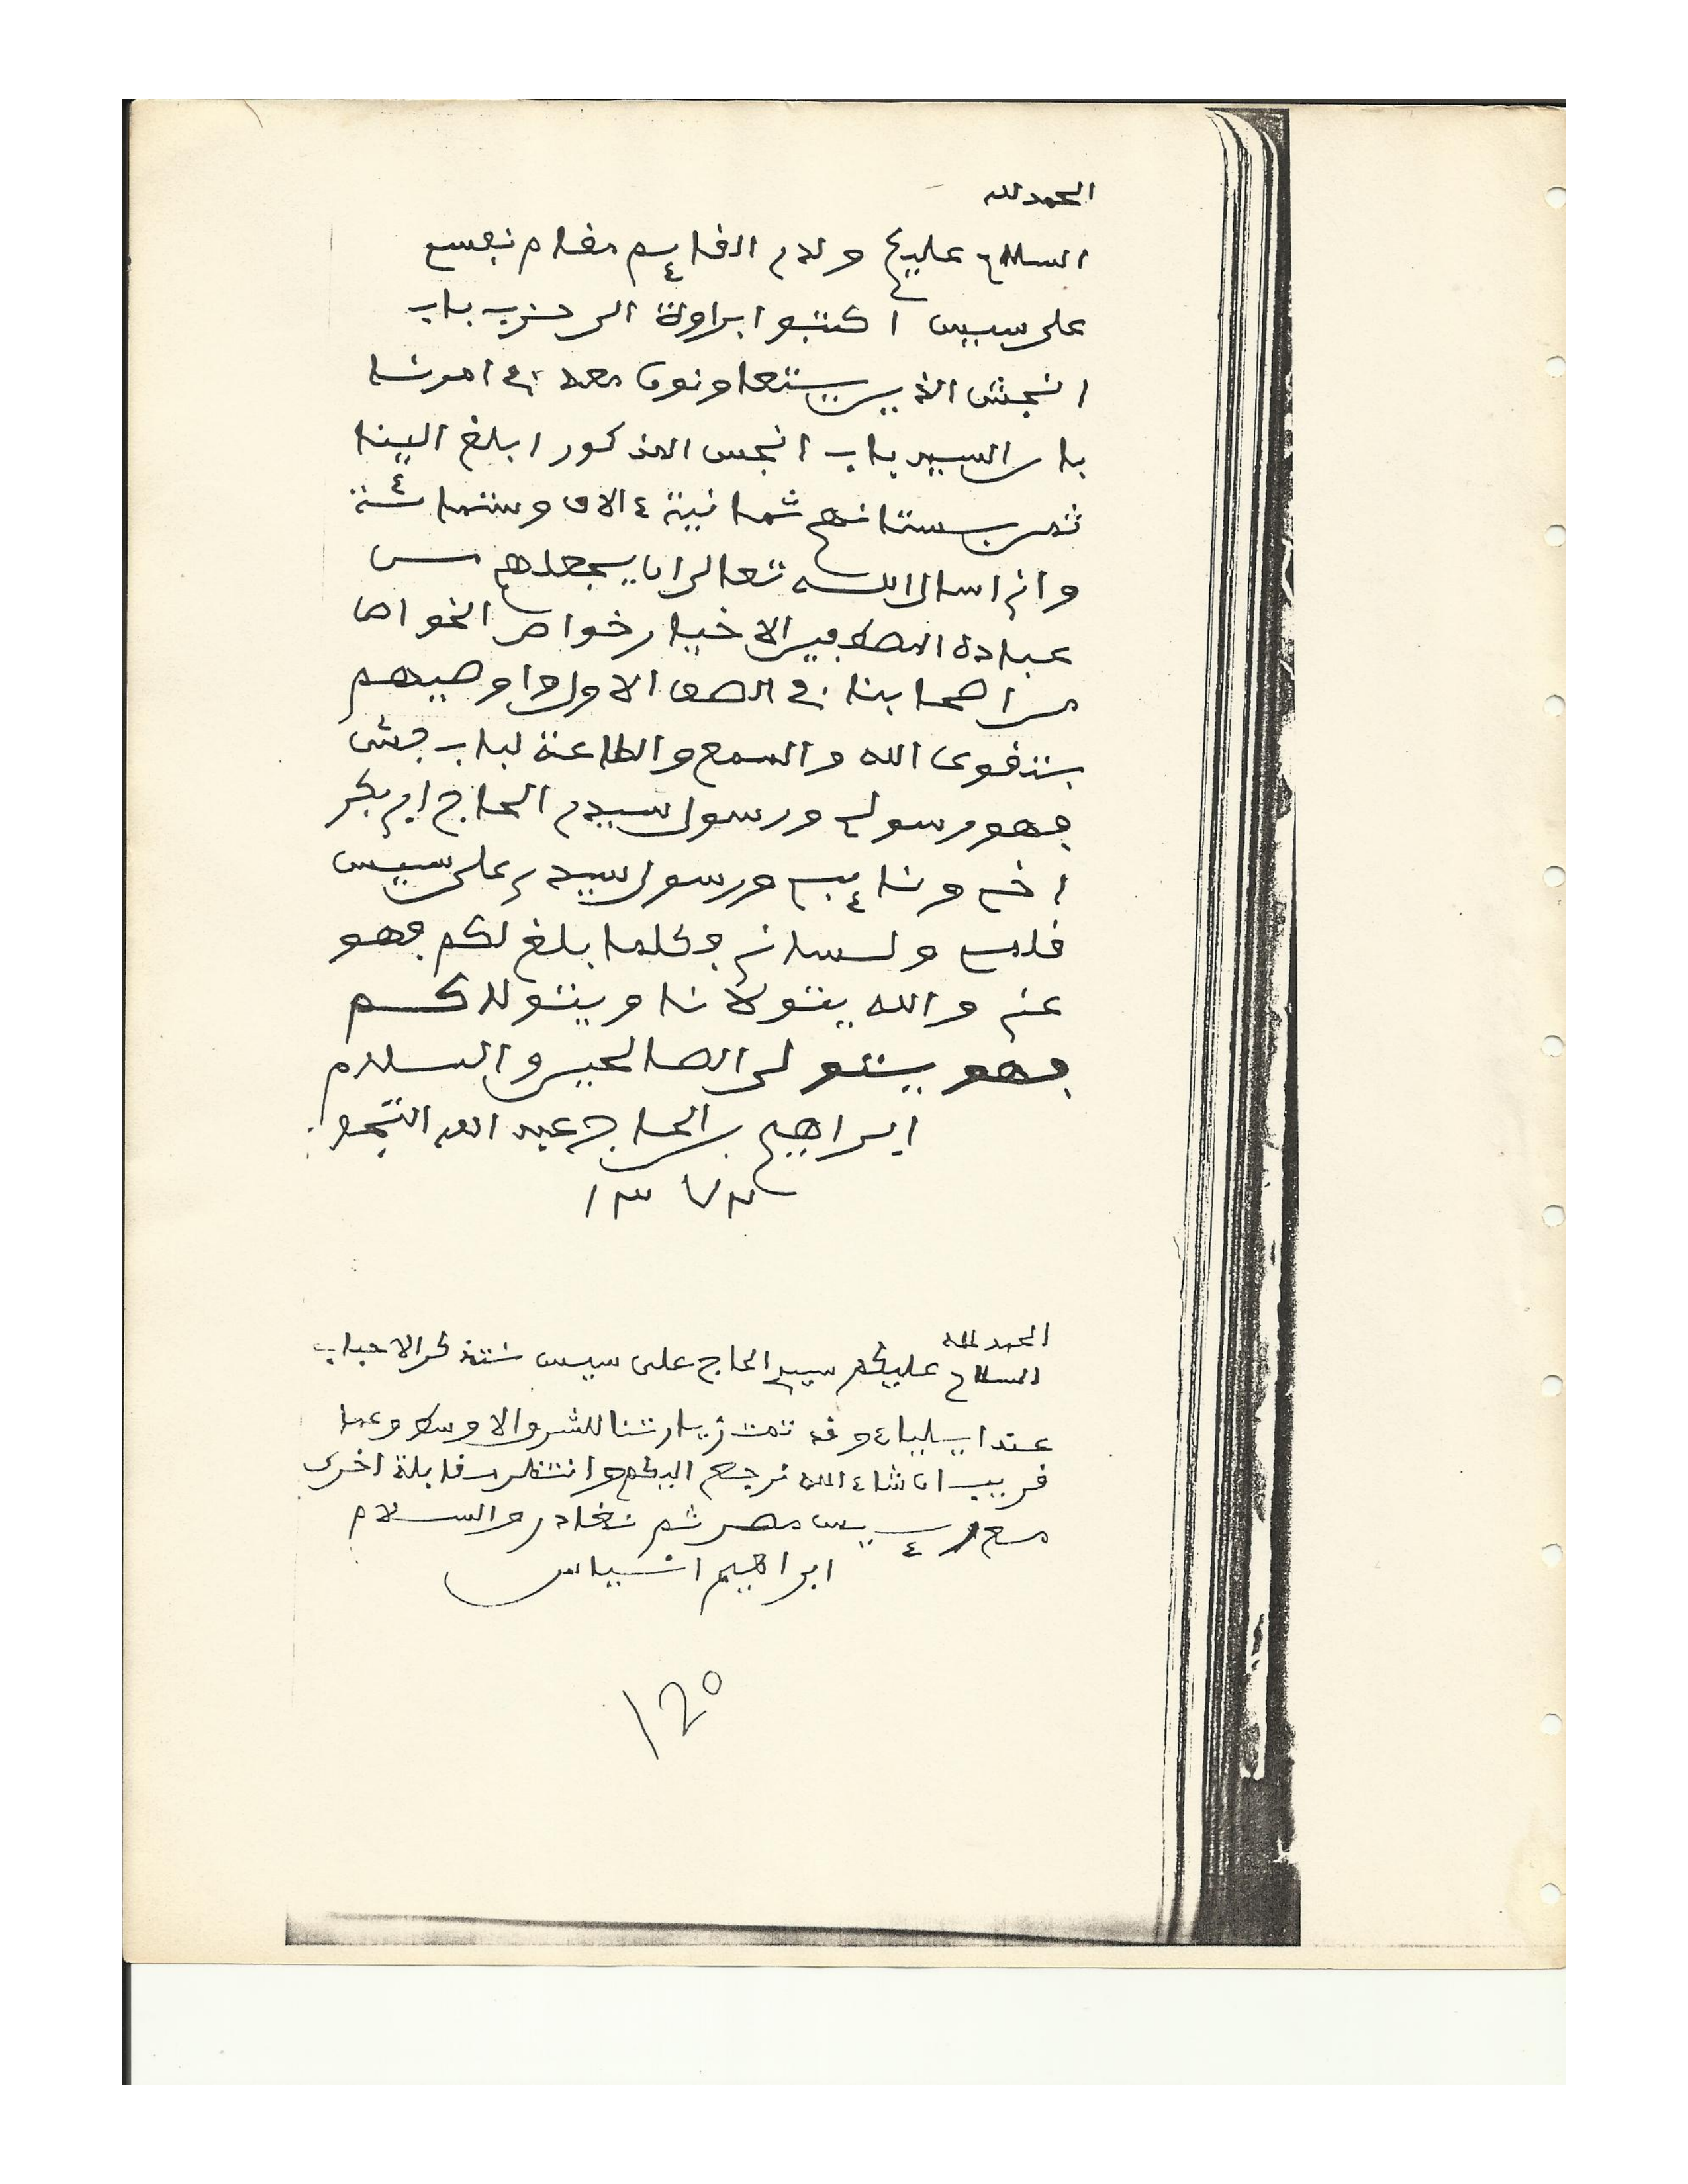 الحمد لله
السلام عليكم ولدي القائم مقام نفسي
على سيس اكتبوا براوة الى حزب باب
انجش الذين يتعاونون معه في امورنا
بان السيد باب انجس المذكور ابلغ الينا
ثمن بستانهم ثمانية ءالاف وستمائة
واني اسال الله تعالى ان يجعلهم من
عباده المصطفين الاخيار خواص الخواص
من اصحابنا في الصف الاول واوصيهم
بتقوى الله والسمع والطاعة لباب جش
فهو رسولي ورسول سيدي الحاج ابي بكر
اخي ونائبي ورسول سيدي على سيس
قلمي ولساني وكلما بلغ لكم فهو
عني والله يتولانا ويتولاكم
فهو يتولى الصالحين والسلام
ابراهيم بن الحاج عبد الله التجو
١٣٧٣
الحمد لله
السلام عليكم سيدي الحاج على سيس نتذكر الاحباب
عند وقد تمت زيارتنا للشرق الاوسط وعما
قريب ان شاء الله نرجع اليكم وانتظر مقابلة اخرى
مع رئيس مصر ثم نغادر والسلام
ابراهيم انياس